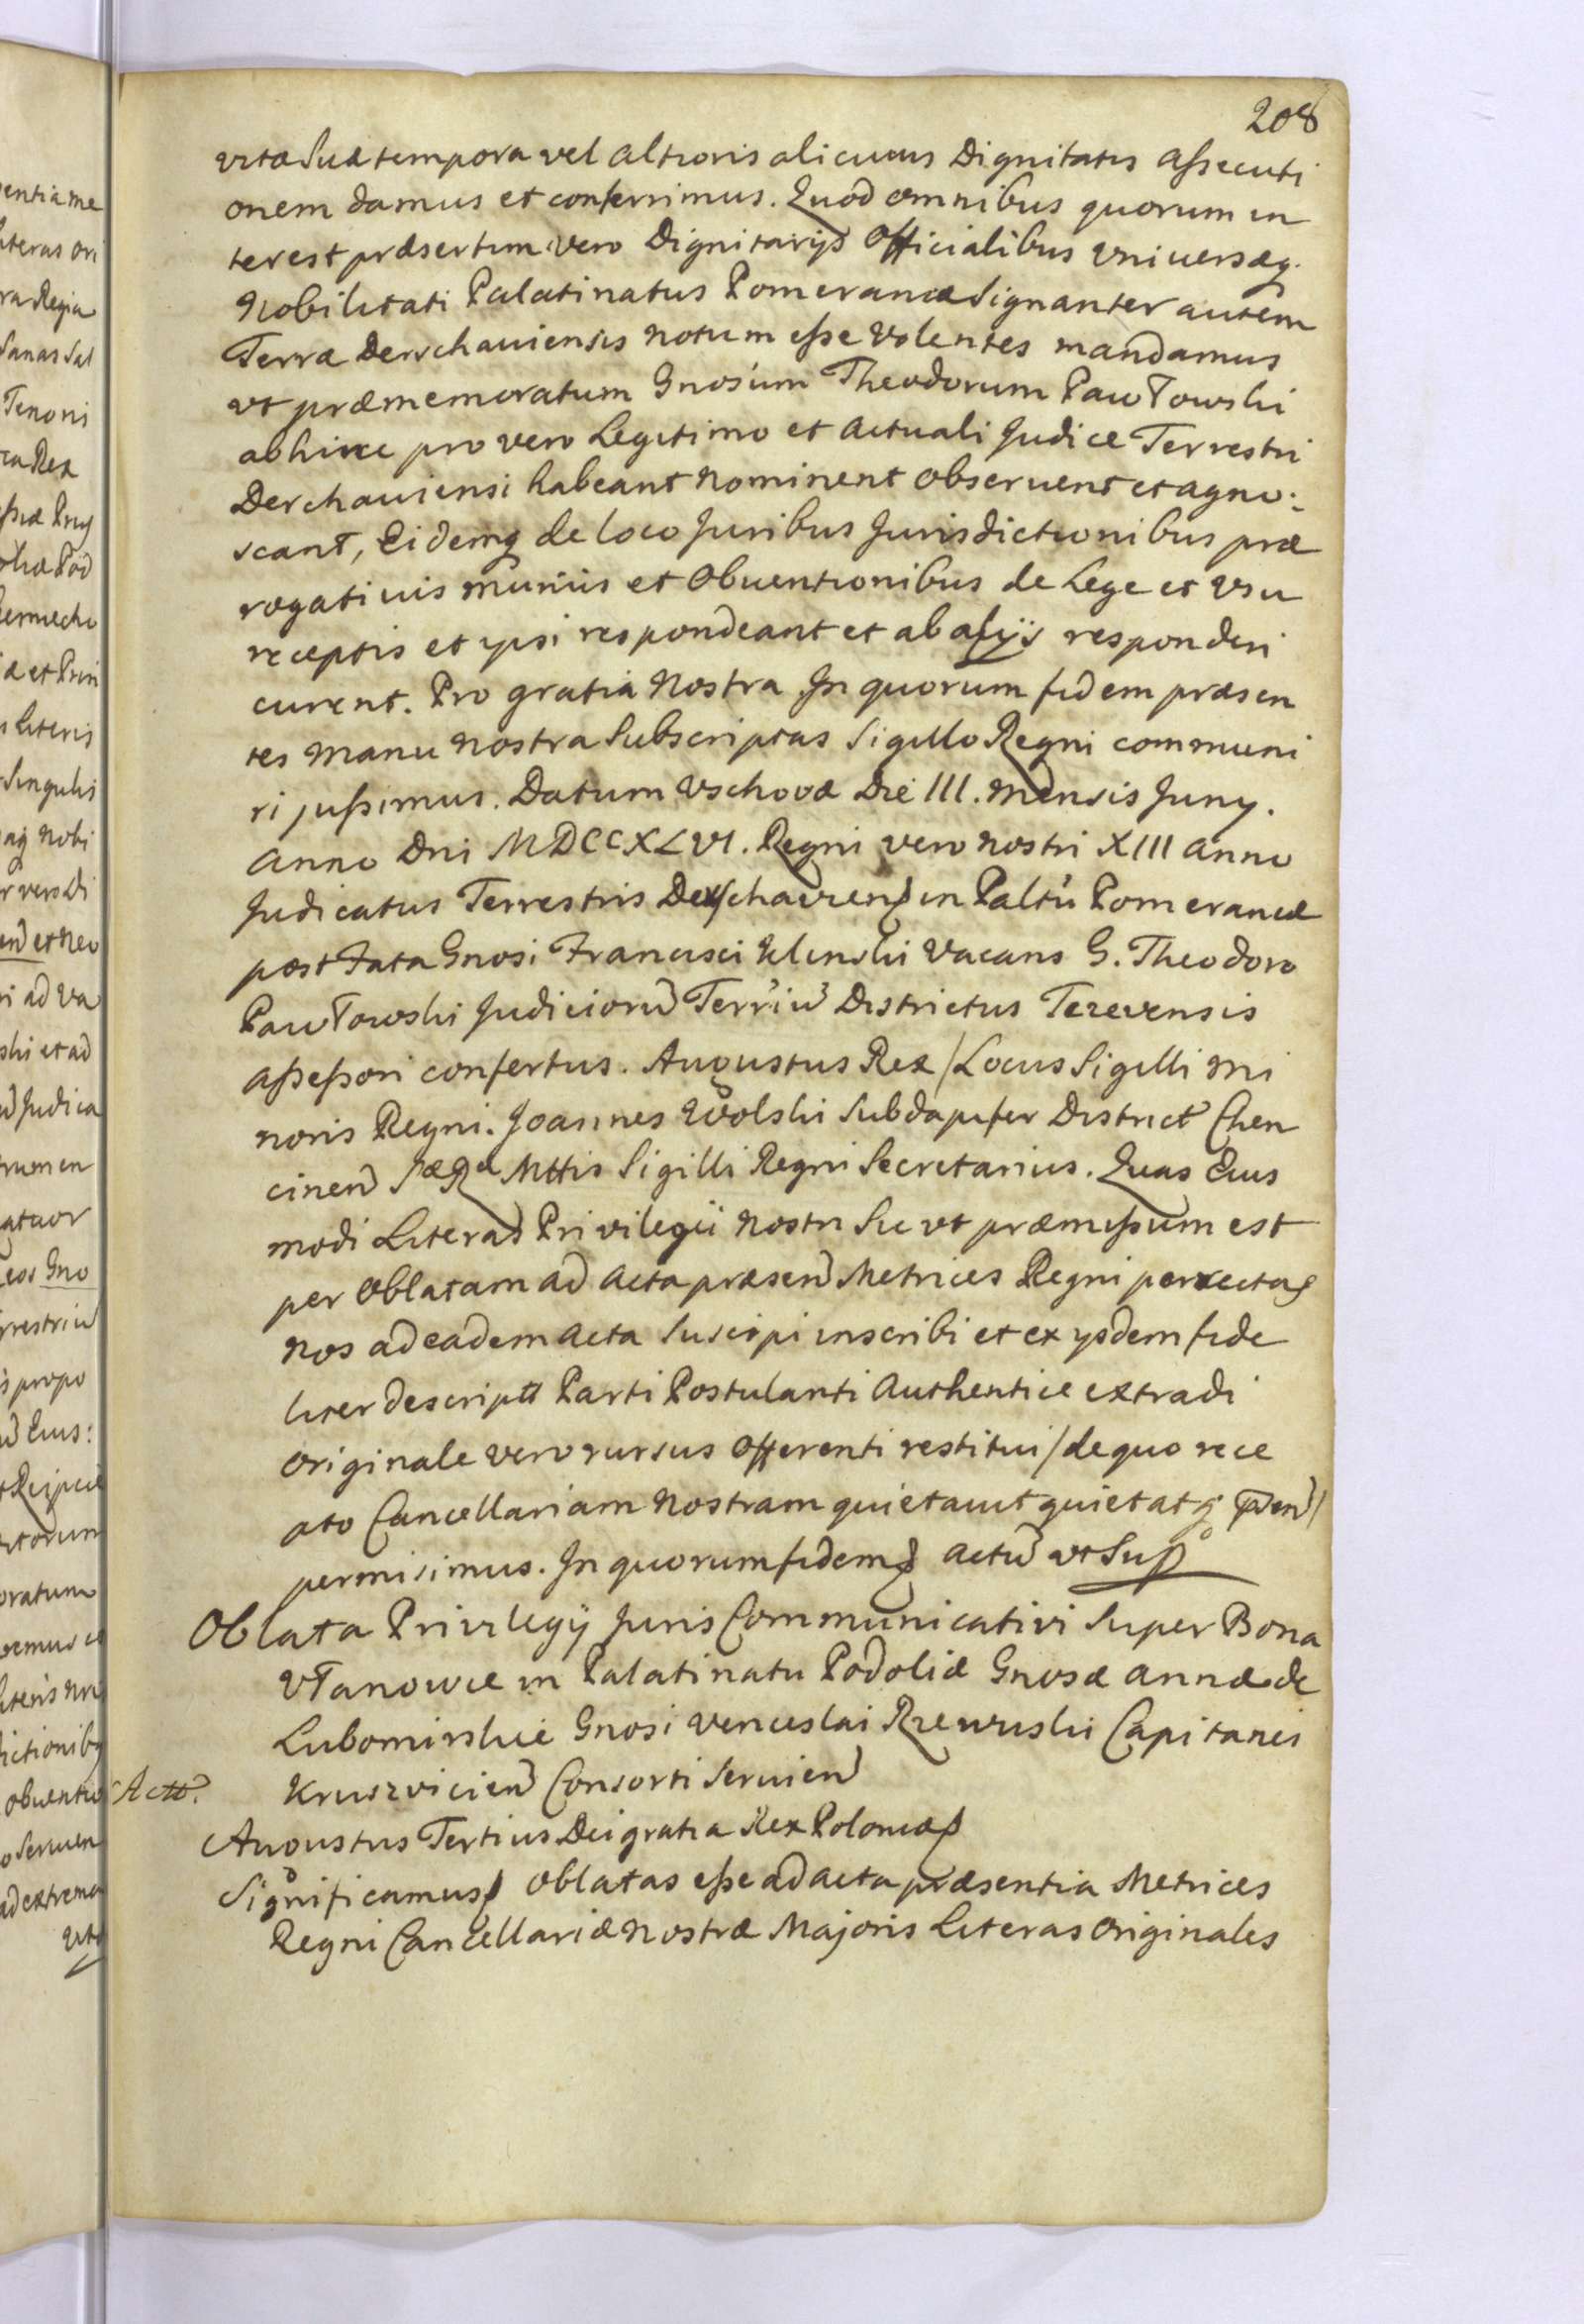 208
vitæ Suæ tempora vel altioris alicuius Dignitatis assecuti
onem damus et conferimus. Quod omnibus quorum in
terest præsertim vero Dignitarijs Officialibus Universæq.
Nobilitati Palatinatus Pomeraniæ Signanter autem
Terræ Derschaviensis notum esse Volentes mandamus
ut præmemoratum Gnosum Theodorum Pawłowski
abhinc pro vero Legitimo et Actuali Judice Terrestri
Derchaviensi habeant nominent observent et agno:
scant, Eidemq de loco Juribus Jurisdictionibus præ
rogativis muniis et Obventionibus de Lege et Usu
receptis et ipsi respondeant et ab alijs responderi
curent. Pro gratia Nostra In quorum fidem præsen
tes Manu nostra Subscriptas Sigillo Regni communi
ri jussimus. Datum Vschovæ Die III. Mensis Juny.
Anno Dni MDCCXLVI. Regni vero nostri XIII anno
Judicatus Terrestris Derschavien in Paltu Pomeraniæ
post Fata Gnosi Francisci Klinski Vacans G. Theodoro
Pawłowski Judiciorū Terriū Districtus Tczevensis
Assessori confertus. Augustus Rex / Locus Sigilli mi
noris Regni. Joannes Wolski Subdapifer District Chen
cinen SæRæ Mttis Sigilli Regni Secretarius. Quas Eius
modi Literas Privilegii nostri Sic ut præmissum est
per Oblatam ad Acta præsen Metrices Regni porrectas
nos ad eadem Acta Suscipi inscribi et ex ysdem fide
liter descriptt Parti Postulanti Authentice extradi
originale vero rursus Offerenti restitui / de quo rece
pto Cancellariam nostram quietavit quietatq pn̄en /
permisimus. In quorum fidem Actū ut Sup
Oblata Privilegij Juris Communicativi Super Bona
Ułanowce in Palatinatu Podoliæ Gnosæ Annæ de
Lubomirskie Gnosi Venceslai Rzewuski Capitanei
Actt. Kruszvicien Consorti Servien
Augustus Tertius Dei gratia Rex Poloniæ
Significamus oblatas esse ad acta præsentia Metrices
Regni Cancellariæ Nostræ Majoris Literas Originales